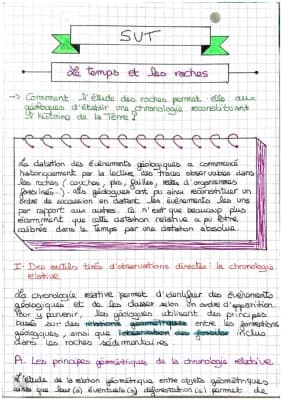 SVT
Le temps et les roches
→ Comment l'étude des roches permet-elle aux
géologues d'établir une chronologie reconstituant
l'histoire de la Terre?
La datation des événements géologiques a commencé
historiquement par la lecture des traces observables dans
les roches (couches, plis, failles, restes d'organismes
fossilisés...). Les géologues ont pu ainsi reconstituer un
ordre de succession en datant les événements les uns
par rapport aux autres. Ce n'est que beaucoup plus
récemment que cette datation relative a pu être
calibrée dans le Temps par une datation absolue.
I- Des outils tirés d'observations directes: la chronologie
relative.
La chronologie relative permet d'identifier des événements
géologiques et de les classer selon un ordre d'apparition.
Pour y parvenir, les géologues utilisent des principes
basés sur des relations géométriques entre les formations
géologiques, ainsi que l'observation des fossiles inclus
dans les roches sédimentaires
A. Les principes géométriques de la chronologie relative
L'étude de la relation géométrique entre objets géométriques
ainsi que leur(s) éventuelle(s) déformation(s) permet de